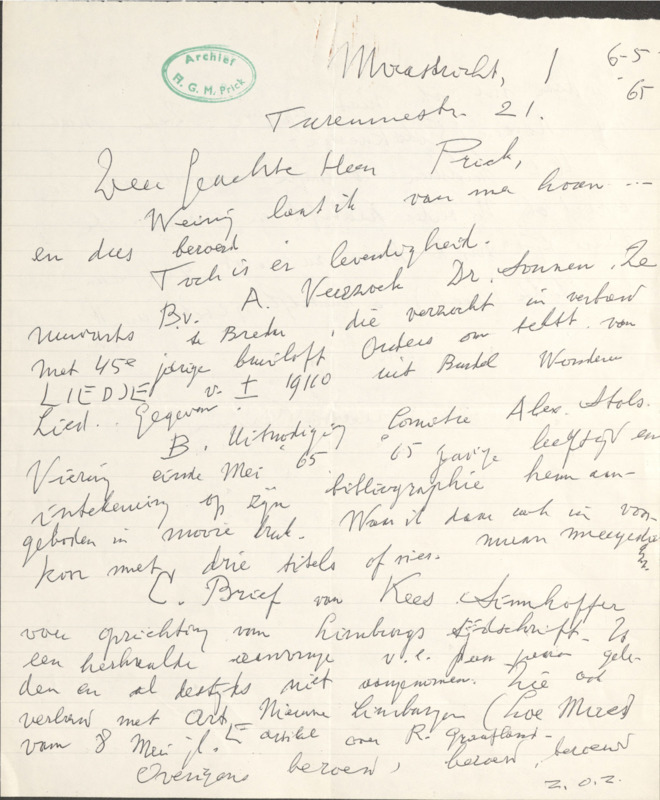 Archief
H. G. M. Prick
Maastricht, 6-5-
'65
Turennestr. 21.
Zeer Geachte Heer Prick,
Weinig laat ik van me horen --
en dus beroerd
Toch is er levendigheid.
B.v. A. Verzoek Dr. Sonnen. Ze
te Breda, die verzocht in verband
met 45e jarige bruiloft Ouders om tekst van
LIEDJE v. ± 1910 uit Bundel Wondere
Lied.. Gegeven.
B. Uitnodiging Comité Alex. Stols.
Viering einde Mei '65 65 jarige leeftijd en
intekening op zijn bibliographie hem aan-
geboden in mooie druk. Waar ik dan ook in voor-
kom met drie titels of zies.
C. Brief van Kees Simhoffer
voor oprichting van Limburgs tijdschrift. Is
een herhaalde aanvrage v.e. paar jaar gele-
den en al destijds niet aangenomen. Zie ook
verband met Art. Nieuwe Limburger (Loe Maas)
van 8 Mei jl. artikel over R. Graafland-
Overigens beroerd, beroerd, beroerd
z.o.z.